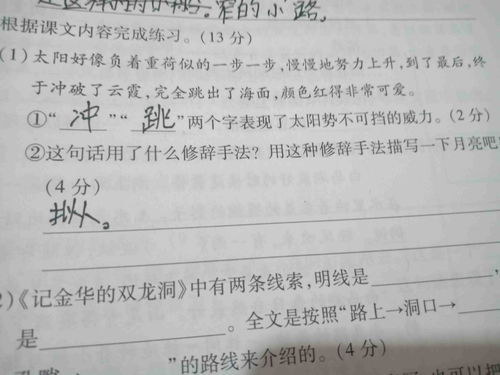 窄的小路。
根据课文内容完成练习。(13分)
(1)太阳好像负着重荷似的一步一步,慢慢地努力上升,到了最后,终
于冲破了云霞,完全跳出了海面,颜色红得非常可爱。
①“冲”“跳”两个字表现了太阳势不可挡的威力。(2分)
②这句话用了什么修辞手法?用这种修辞手法描写一下月亮吧
(4分)
拟人。
2)《记金华的双龙洞》中有两条线索,明线是
是。全文是按照“路上→洞口→
”的路线来介绍的。(4分)
也可以把